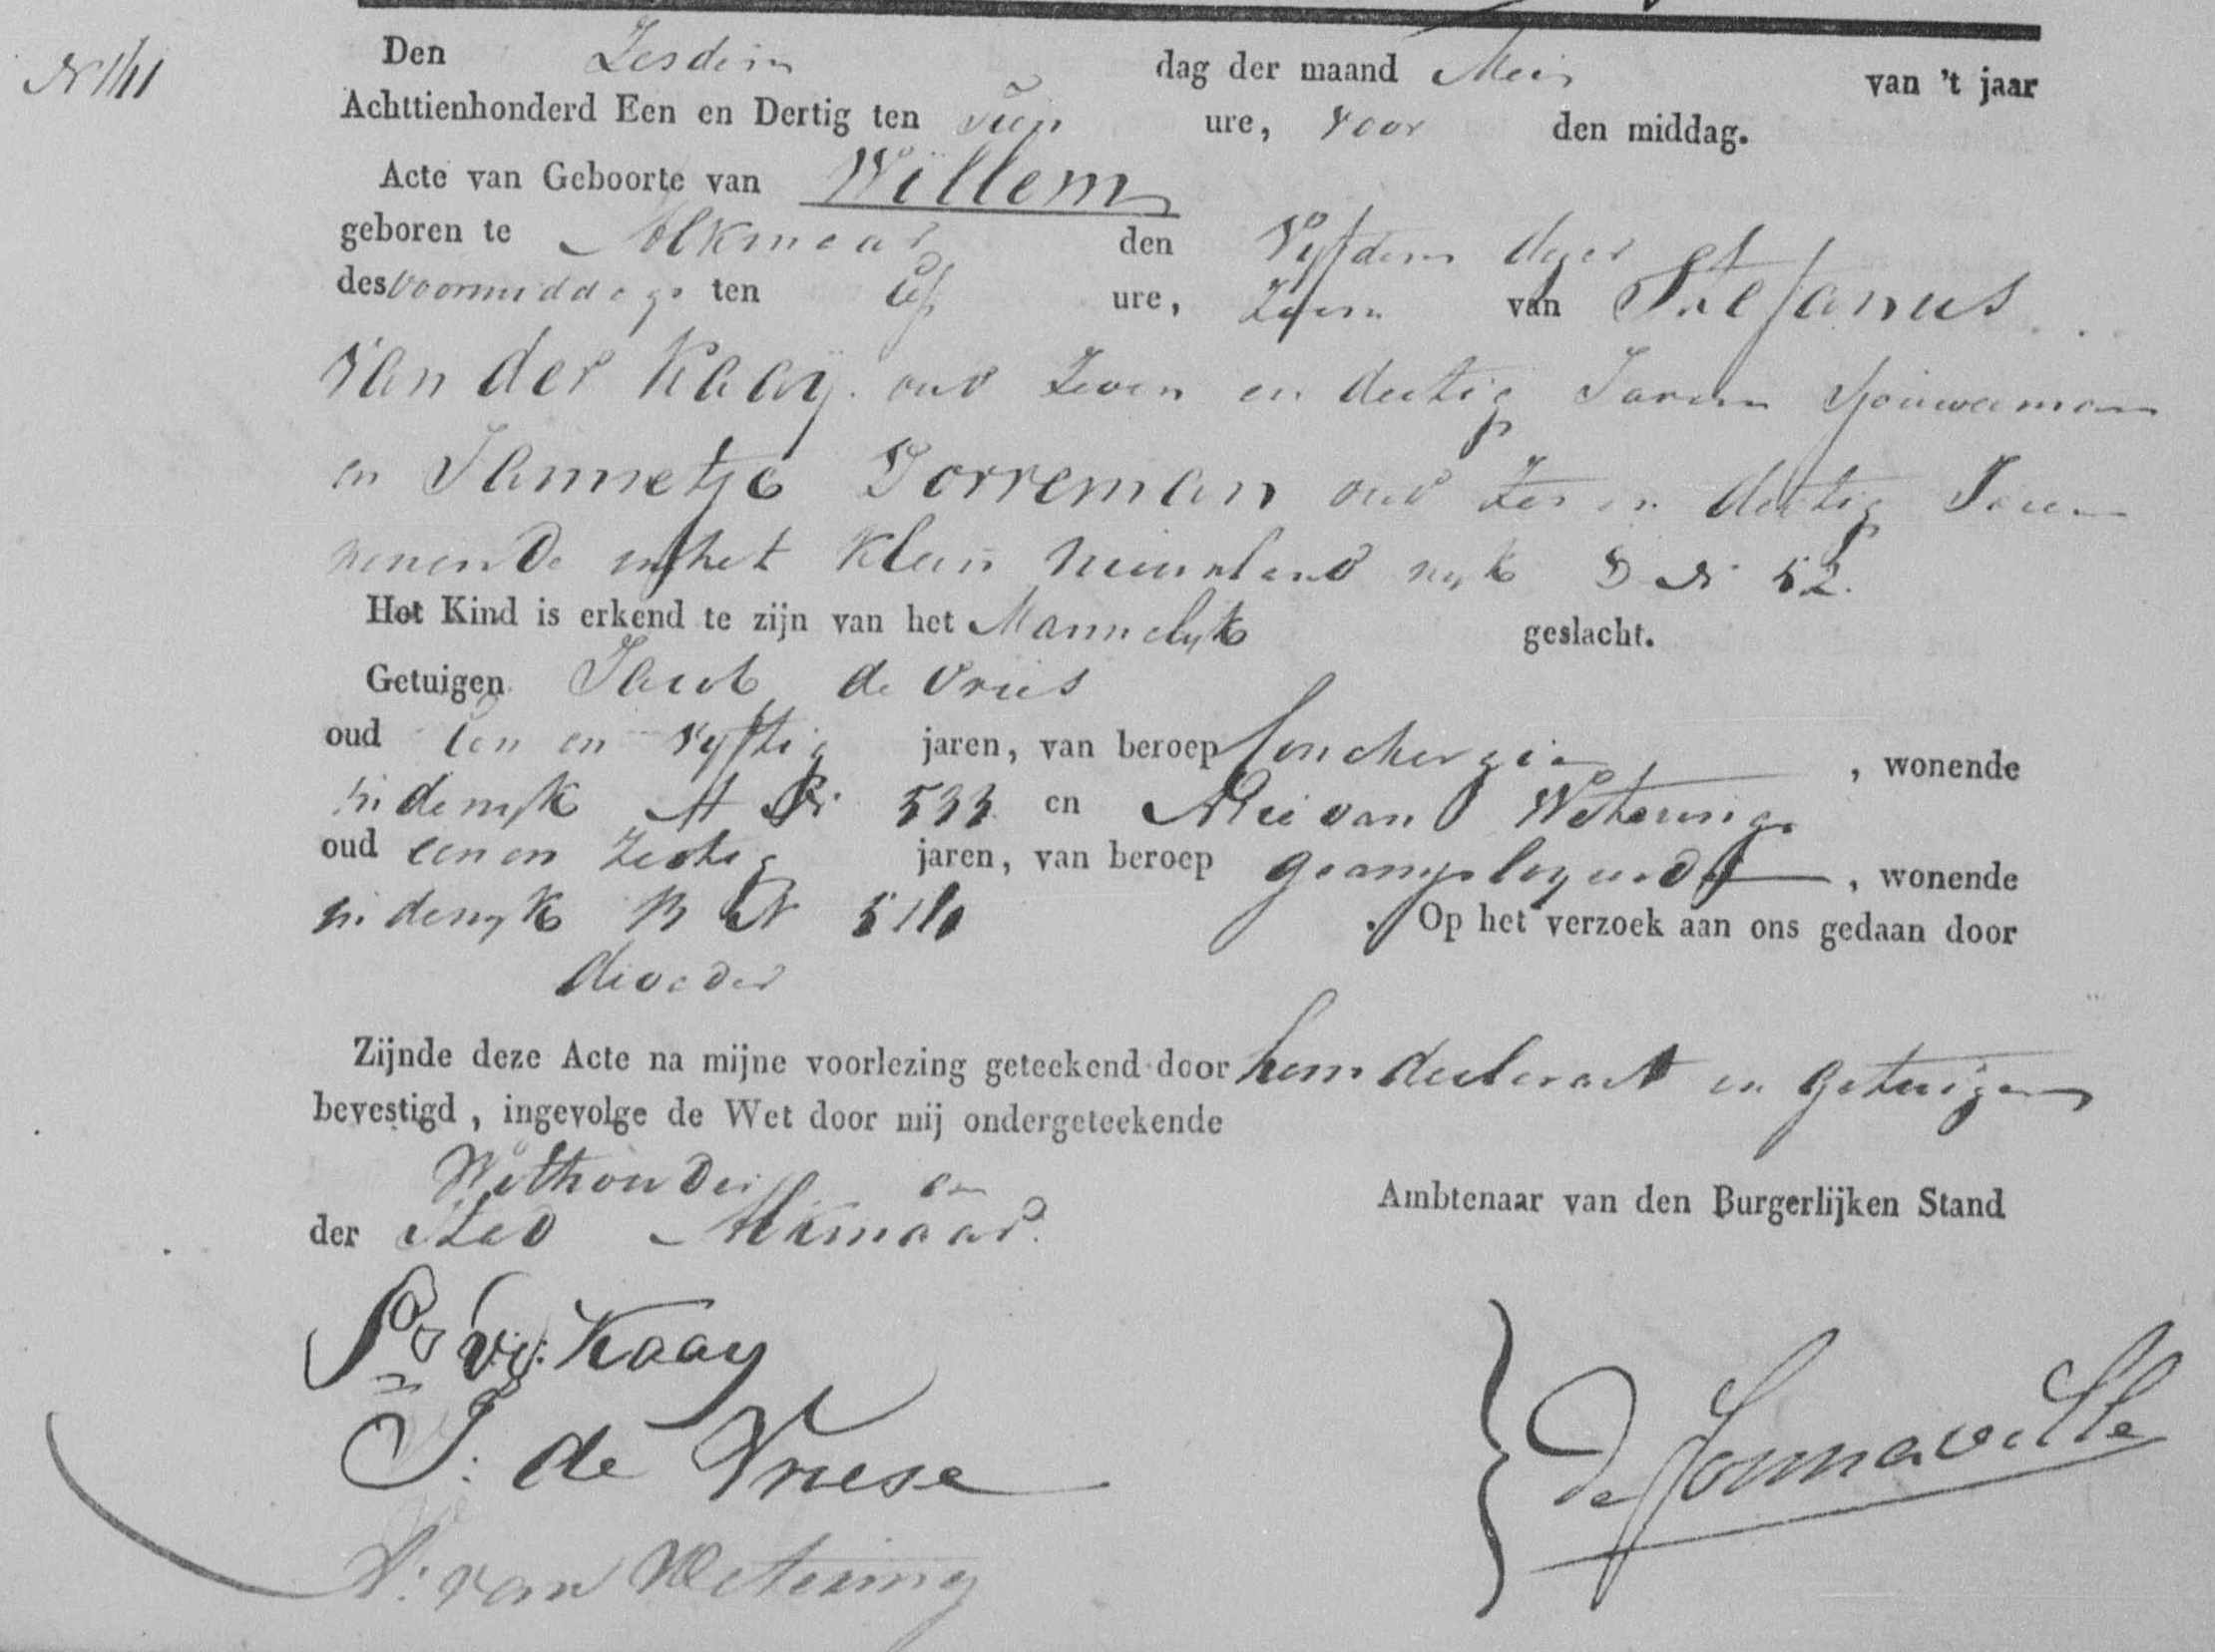 N 141
Den Zesden dag der maand Mei van 't jaar
Achttienhonderd Een en Dertig ten tien ure, voor den middag.
Acte van Geboorte van Willem
geboren te Alkmaar den Vyfden dezer
des voormiddags ten elf ure, Zoon van Stefanus
van der Kaaÿ oud zeven en dertig Jaren Sjouwerman
en Jannetje Torreman oud zes en dertig Jaren
wonende in het klein Nieuwland wyk D N 52.
Het Kind is erkend te zijn van het Mannelyk geslacht.
Getuigen Jacob de Vries
oud een en vyftig jaren, van beroep Conchergie, wonende
in de wyk A N 533 en Arie van Wetering
oud een en zestig jaren, van beroep geamployeerde, wonende
in de wyk B N 510. Op het verzoek aan ons gedaan door
de vader
Zijnde deze Acte na mijne voorlezing geteekend door hem declarant en getuigen
bevestigd, ingevolge de Wet door mij ondergeteekende
Wethouder en Ambtenaar van den Burgerlijken Stand
der Stad Alkmaar.
S v: Kaay
J: de Vriese
A: van Wetering